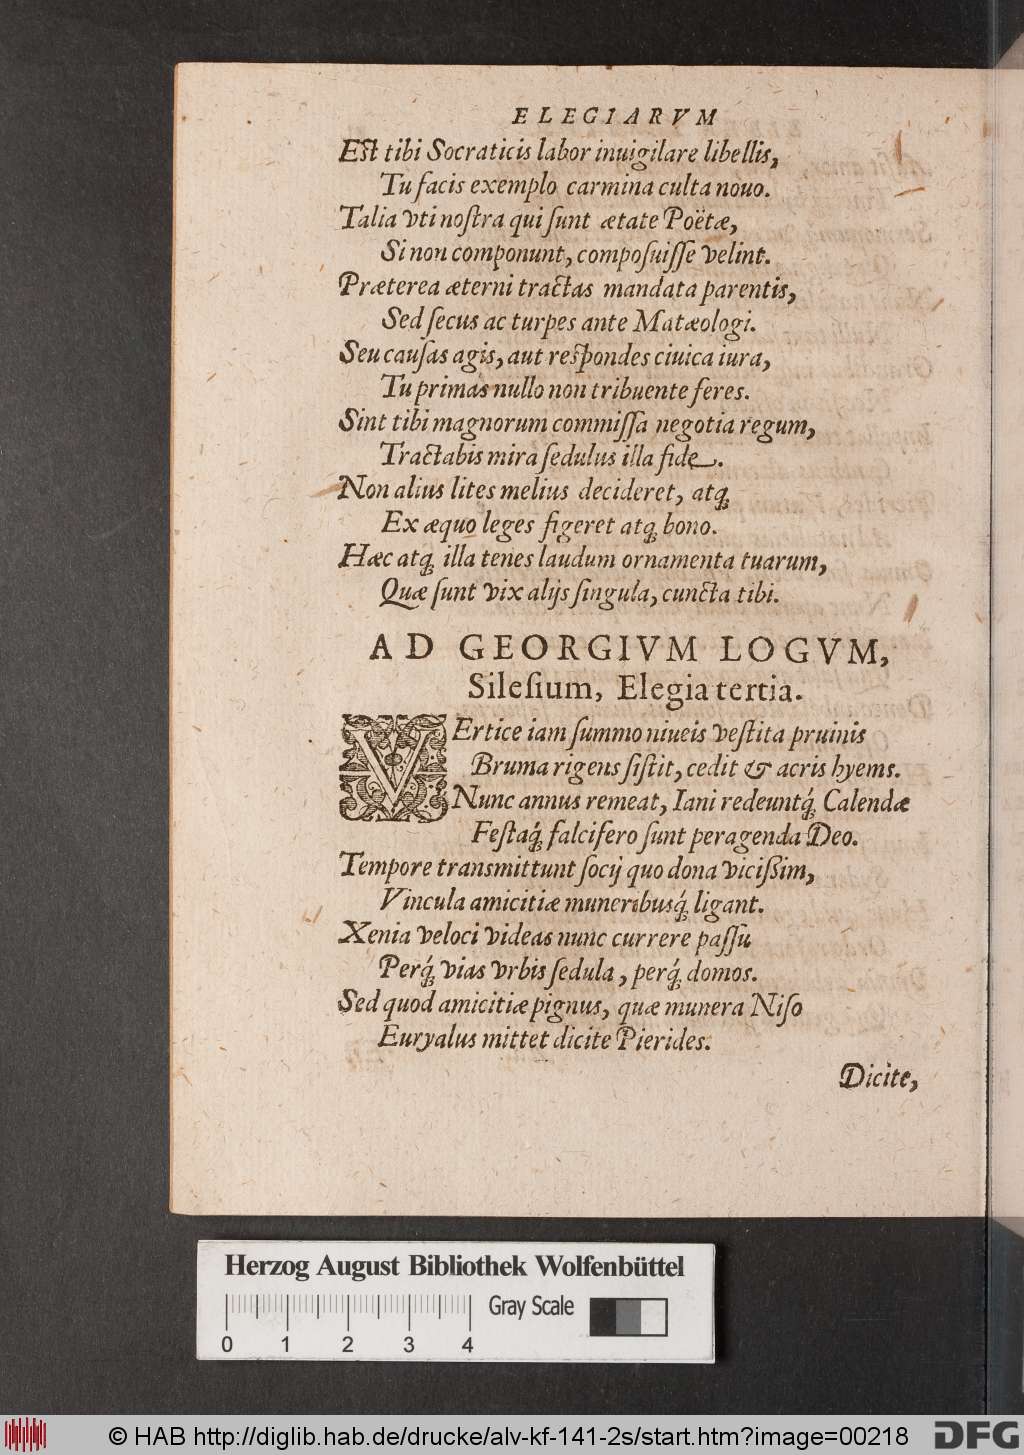 ELEGIARVM
Eſt tibi Socraticis labor inuigilare libellis,
Tu facis exemplo carmina culta nouo.
Talia vti noſtra qui ſunt ætate Poëtæ,
Si non componunt, compoſuiſſe velint.
Præterea æterni tractas mandata parentis,
Sed ſecus ac turpes ante Matæologi.
Seu cauſas agis, aut reſpondes ciuica iura,
Tu primas nullo non tribuente feres.
Sint tibi magnorum commiſſa negotia regum,
Tractabis mira ſedulus illa fide.
Non alius lites melius decideret, atq;
Ex æquo leges figeret atq; bono.
Hæc atq; illa tenes laudum ornamenta tuarum,
Quæ ſunt vix alijs ſingula, cuncta tibi.
AD GEORGIVM LOGVM,
Sileſium, Elegia tertia.
VErtice iam ſummo niueis veſtita pruinis
Bruma rigens ſiſtit, cedit & acris hyems.
Nunc annus remeat, Iani redeuntq́; Calendæ
Feſtaq́; falcifero ſunt peragenda Deo.
Tempore transmittunt ſocij quo dona viciſsim,
Vincula amicitiæ muneribusq́; ligant.
Xenia veloci videas nunc currere paſſu
Perq́; vias vrbis ſedula, perq́; domos.
Sed quod amicitiæ pignus, quæ munera Niſo
Euryalus mittet dicite Pierides.
Dicite,
Herzog August Bibliothek Wolfenbüttel
Gray Scale
0 1 2 3 4
© HAB http://diglib.hab.de/drucke/alv-kf-141-2s/start.htm?image=00218
DFG